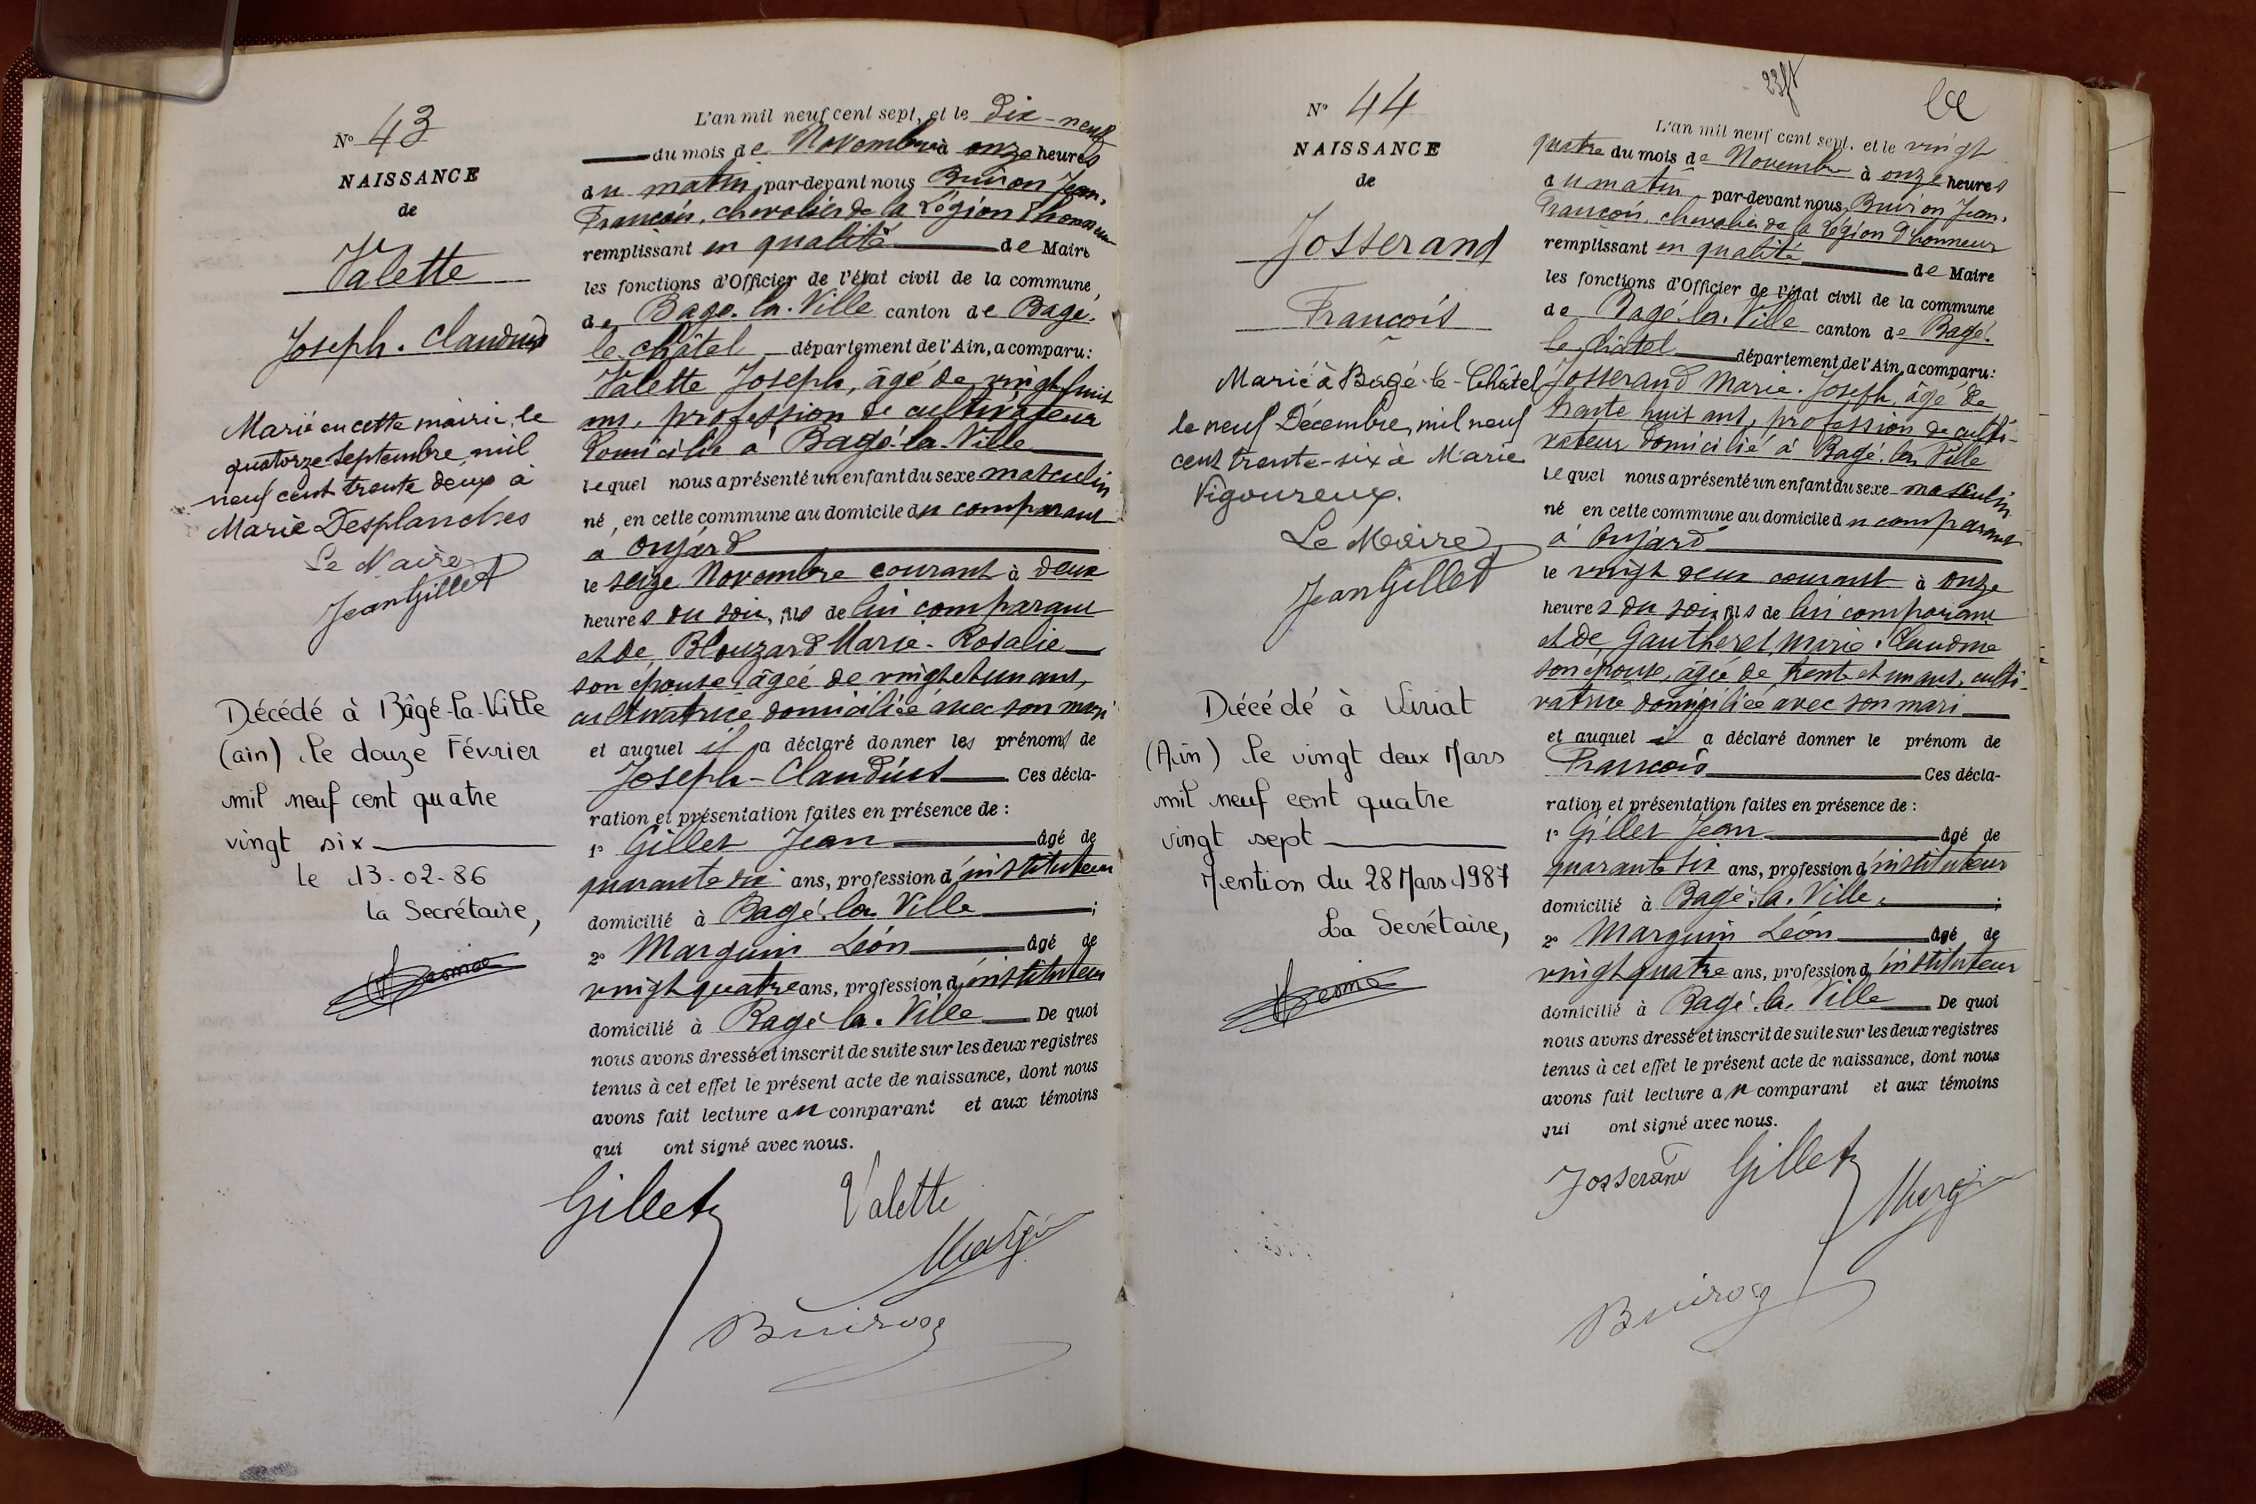 N° 43
NAISSANCE
de
Valette
Joseph. Claudius
Marié en cette mairie, le
quatorze septembre mil
neuf cent trente deux à
Marie Desplanches
Le Maire
Jean Gillet
Décédé à Bâgé-la-Ville
(ain) le douze Février
mil neuf cent quatre
vingt six
le 13-02-86
la Secrétaire,
L'an mil neuf cent sept, et le dix-neuf
du mois de Novembre à onze heures
du matin, par-devant nous Buiron Jean.
François, chevalier de la Légion d'honneur
remplissant en qualité de Maire
les fonctions d'Officier de l'état civil de la commune
de Bagé. la. Ville canton de Bagé.
le châtel département de l'Ain, a comparu:
Valette Joseph, âgé de vingt huit
ans, profession de cultivateur
domicilié à Bagé-la-Ville
lequel nous a présenté un enfant du sexe masculin
né en cette commune au domicile du comparant
à Oujard
le seize Novembre courant à deux
heures du soir, fils de lui comparant
et de Blouzard Marie-Rosalie
son épouse âgée de vingt et un ans,
cultivatrice domiciliée avec son mari
et auquel il a déclaré donner les prénoms de
Joseph-Claudius Ces décla-
ration et présentation faites en présence de :
1° Gillet Jean âgé de
quarante six ans, profession d'instituteur
domicilié à Bagé. la Ville ;
2° Marguin Léon âgé de
vingt quatre ans, profession d'instituteur
domicilié à Bagé la. Ville De quoi
nous avons dressé et inscrit de suite sur les deux registres
tenus à cet effet le présent acte de naissance, dont nous
avons fait lecture au comparant et aux témoins
qui ont signé avec nous.
Gillet Valette
Marguin
Buiron
N° 44
NAISSANCE
de
Josserand
François
Marié à Bagé-le-Châtel
le neuf Décembre, mil neuf
cent trente-six à Marie
Vigoureux.
Le Maire
Jean Gillet
Décédé à Viriat
(Ain) le vingt deux Mars
mil neuf cent quatre
vingt sept
Mention du 28 Mars 1987
La Secrétaire,
L'an mil neuf cent sept. et le vingt
quatre du mois de Novembre à onze heures
du matin, par-devant nous Buiron Jean.
François, chevalier de la Légion d'honneur
remplissant en qualité de Maire
les fonctions d'Officier de l'état civil de la commune
de Bagé. la. Ville canton de Bagé.
le châtel département de l'Ain, a comparu:
Josserand Marie. Joseph, âgé de
trente huit ans, profession de culti-
vateur domicilié à Bagé. la Ville
lequel nous a présenté un enfant du sexe masculin
né en cette commune au domicile du comparant
à Oujard
le vingt deux courant à onze
heures du soir, fils de lui comparant
et de Gautheret Marie. Claudine
son épouse, âgée de trente et un ans, culti-
vatrice domiciliée avec son mari
et auquel il a déclaré donner le prénom de
François Ces décla-
ration et présentation faites en présence de :
1° Gillet Jean âgé de
quarante six ans, profession d'instituteur
domicilié à Bagé. la. Ville. ;
2° Marguin Léon âgé de
vingt quatre ans, profession d'instituteur
domicilié à Bagé. la. Ville De quoi
nous avons dressé et inscrit de suite sur les deux registres
tenus à cet effet le présent acte de naissance, dont nous
avons fait lecture au comparant et aux témoins
qui ont signé avec nous.
Josserand Gillet
Marguin
Buiron